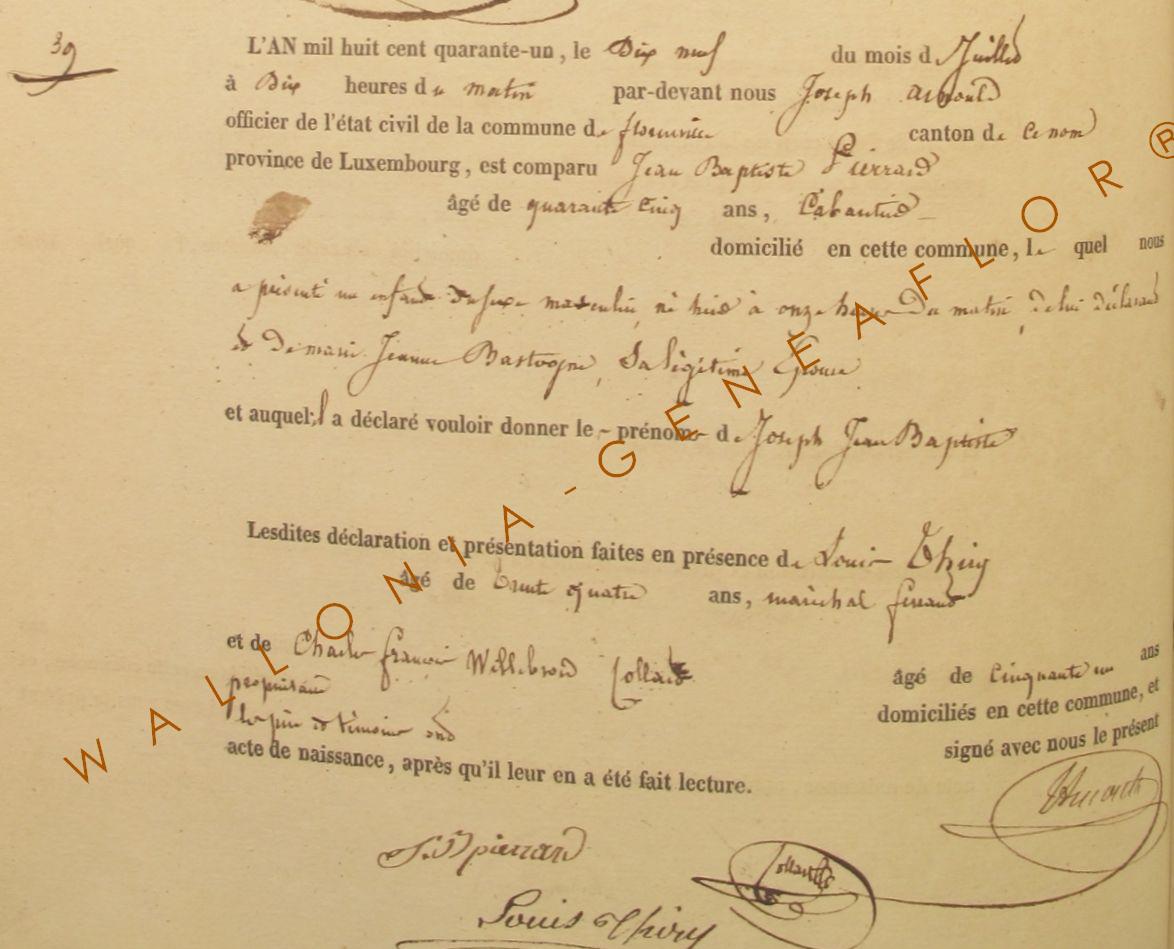 39
L'AN mil huit cent quarante-un, le Dix neuf du mois de Juillet
à Dix heures du matin par-devant nous Joseph Arnould
officier de l'état civil de la commune de florenville canton de ce nom
province de Luxembourg, est comparu Jean Baptiste Pierrard
âgé de quarante cinq ans, Cabaretier
domicilié en cette commune, le quel nous
a présenté un enfant du sexe masculin, né hier à onze heures du matin, de lui déclarant
et de marie Jeanne Bastogne, Sa légitime Epouse
et auquel il a déclaré vouloir donner le - prénoms de Joseph Jean Baptiste
Lesdites déclaration et présentation faites en présence de Louis Thiry
âgé de trente quatre ans, maréchal ferrant
et de Charles françois Willebrord Collard âgé de Cinquante un ans
propriétaire domiciliés en cette commune, et
les père et témoins ont signé avec nous le présent
acte de naissance, après qu'il leur en a été fait lecture.
J. B. pierrard
Louis Thiry
WALLONIA-GENEAFLOR®